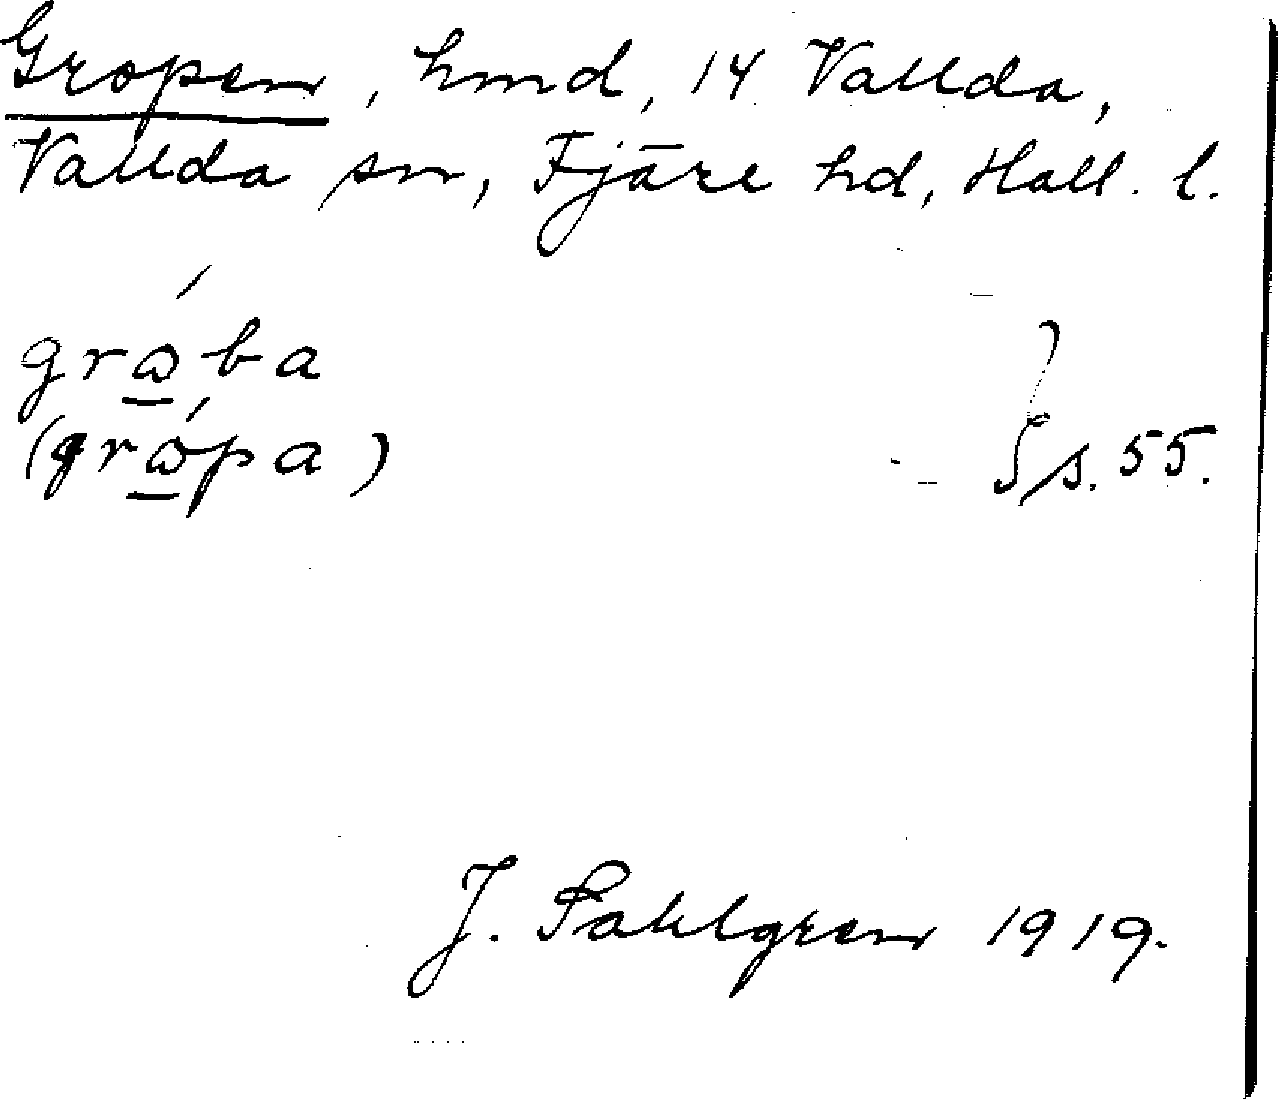 Gropen, hmd, 14 Vallda,
Vallda sn, Fjäre hd, Hall. l.
grώ̲ba
(grώ̲pa) } s. 55.
J. Sahlgren 1919.